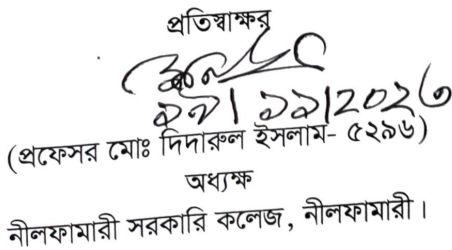 প্রতিস্বাক্ষর
(প্রফেসর মোঃ দিদারুল ইসলাম- ৫২৯৬)
অধ্যক্ষ
নীলফামারী সরকারি কলেজ, নীলফামারী।